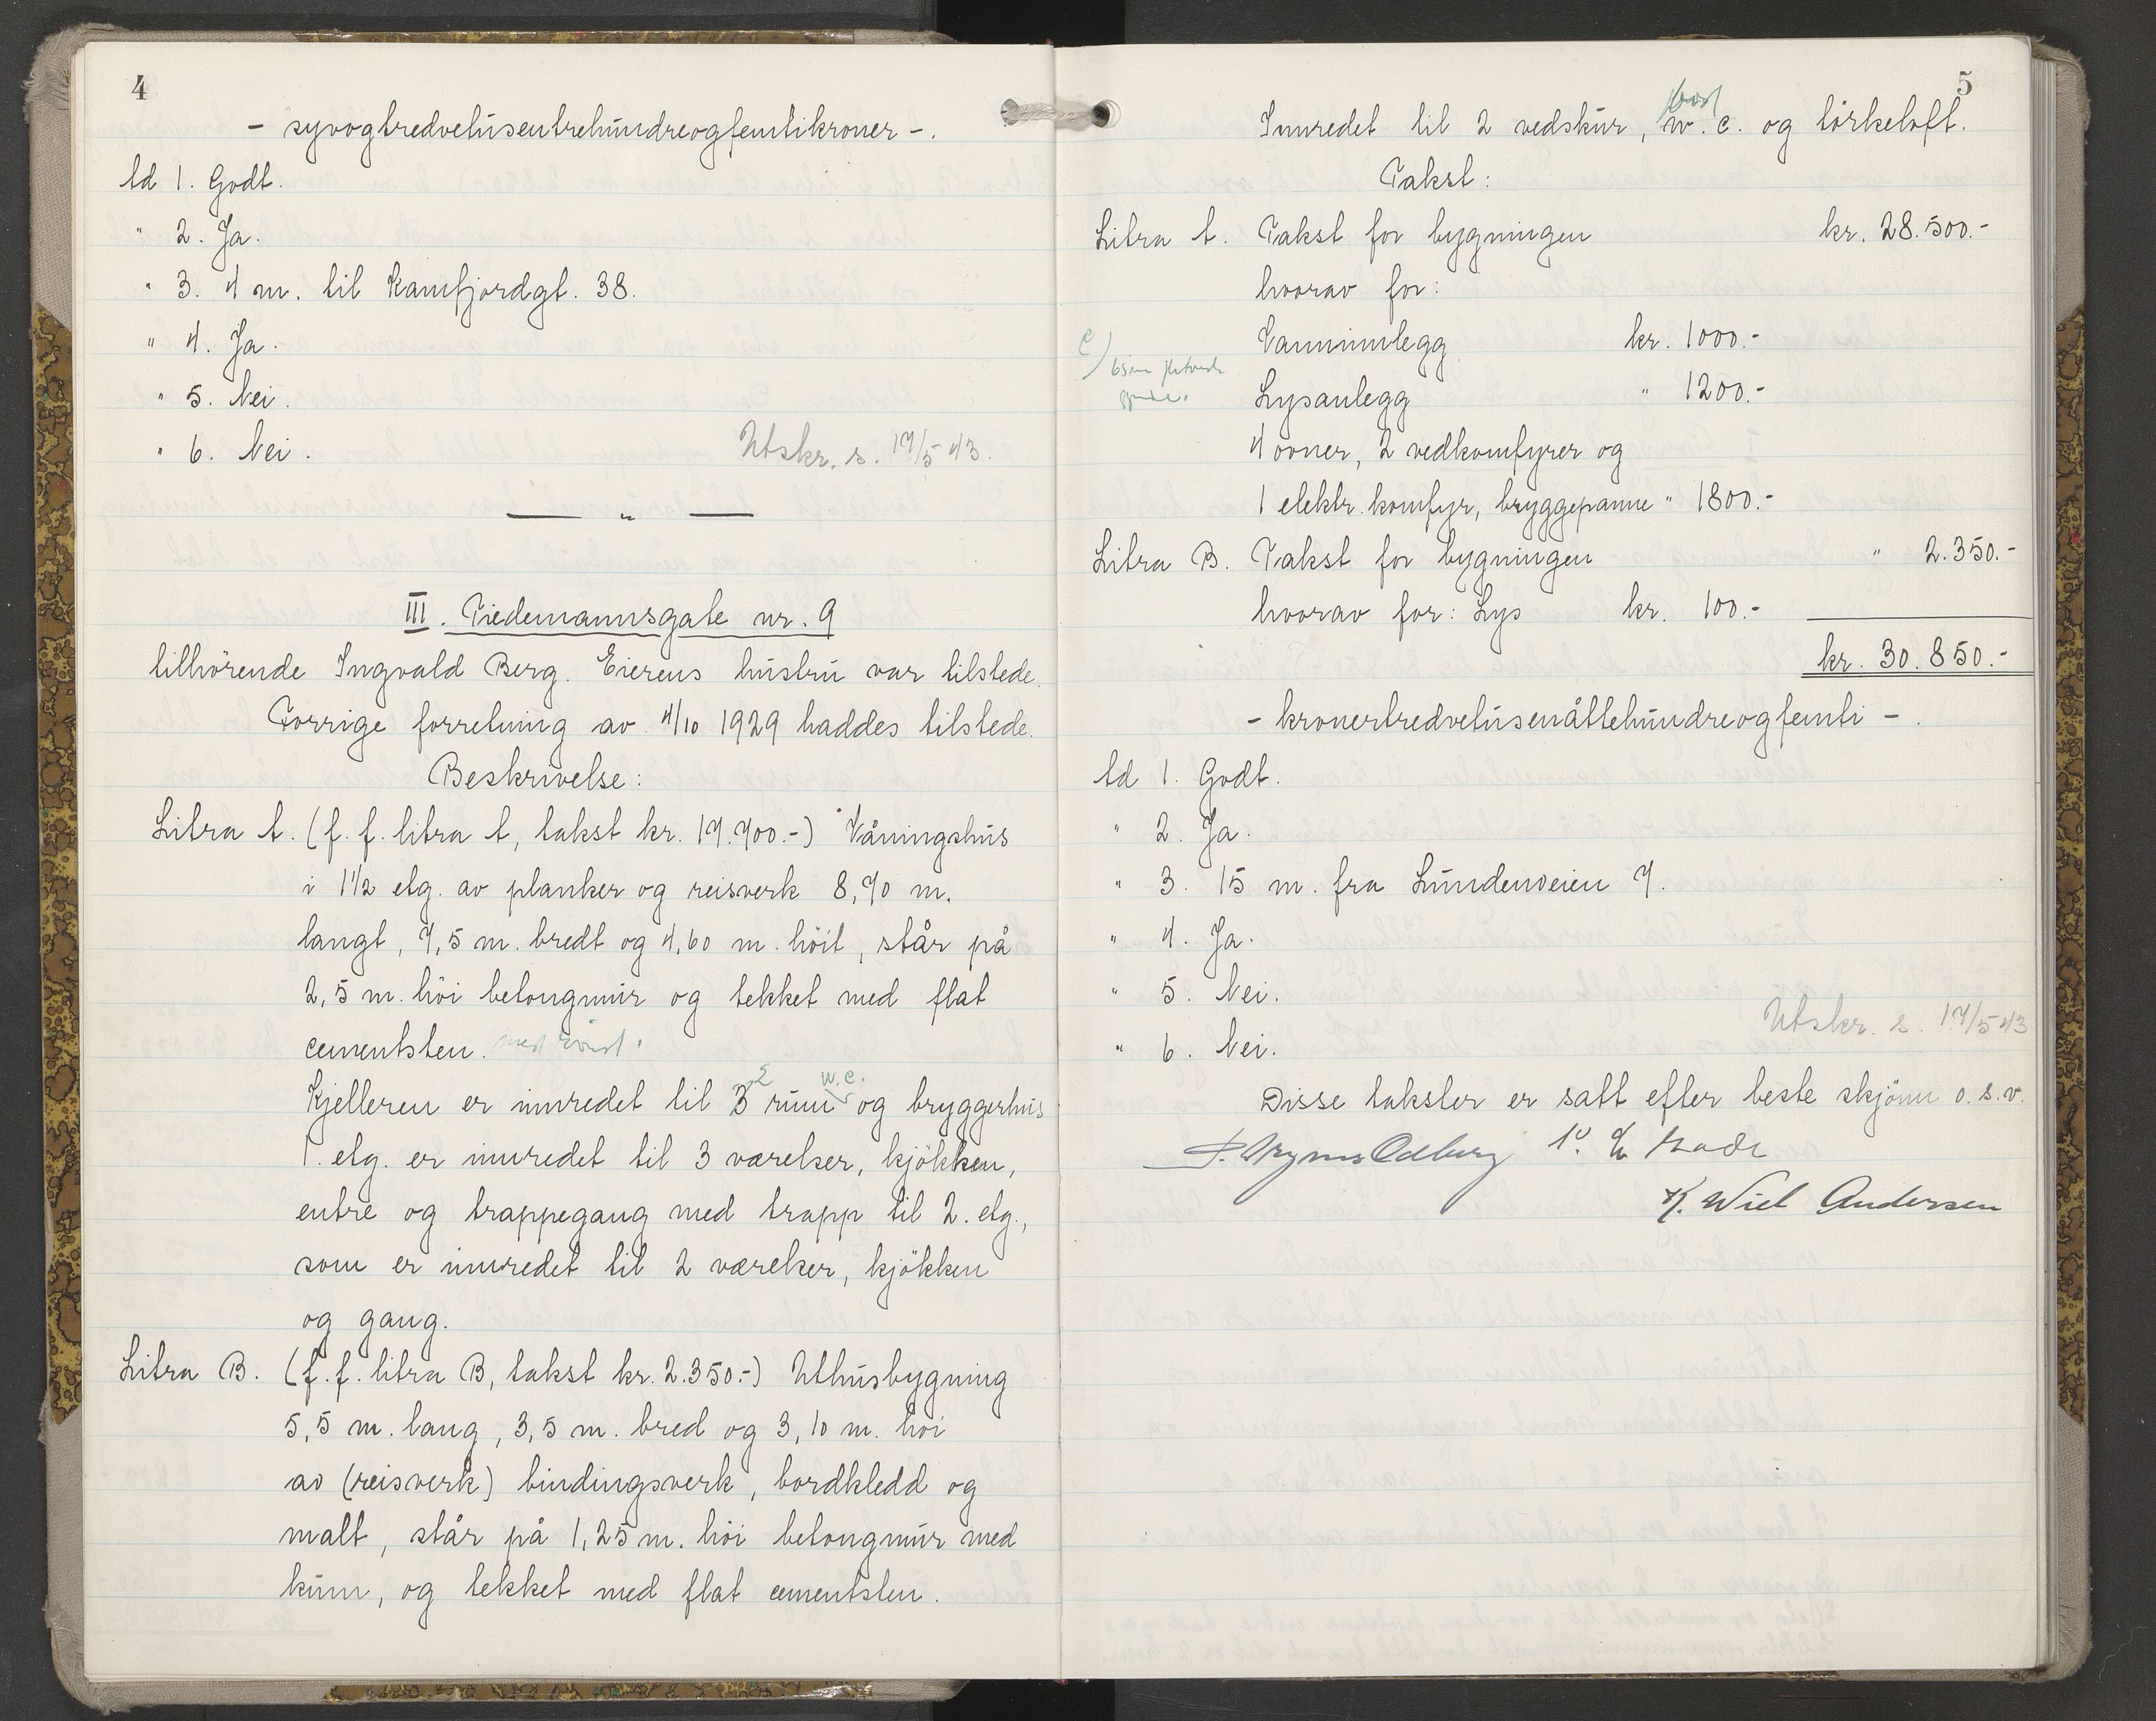 4
- syvogtredvetusentrehundreogfemtikroner -.
Ad 1. Godt.
" 2. Ja.
" 3. 4 m. til Kamfjordgt. 38.
" 4. Ja.
" 5. Nei.
" 6. Nei.
Utskr. s. 17/5 43.
— " —
III. Tiedemannsgate nr. 9
tilhörende Ingvald Berg. Eierens hustru var tilstede.
Forrige forretning av 4/10 1929 haddes tilstede.
Beskrivelse:
Litra A. (f. f. litra A, takst kr. 17.700.-) Våningshus
i 1 1/2 etg. av planker og reisverk 8,70 m.
langt, 7,5 m. bredt og 4,60 m. höit, står på
2,5 m. höi betongmur og tekket med flat
cementsten.
2 w.c.
Kjelleren er innredet til 3 rum og bryggerhus
1. etg. er innredet til 3 værelser, kjökken,
entre og trappegang med trapp til 2. etg.,
som er innredet til 2 værelser, kjökken
og gang.
Litra B. (f. f. litra B, takst kr. 2.350.-) Uthusbygning
5,5 m. lang, 3,5 m. bred og 3,10 m. höi
av (reisverk) bindingsverk, bordkledd og
malt, står på 1,25 m. höi betongmur med
kum, og tekket med flat cementsten.
5
bod
Innredet til 2 vedskur, w.c. og törkeloft.
Takst:
Litra A. Takst for bygningen kr. 28.500.-
hvorav for:
Vanninnlegg kr. 1000.-
Lysanlegg " 1200.-
4 ovner, 2 vedkomfyrer og
1 elektr. komfyr, bryggepanne " 1800.-
Litra B. Takst for bygningen " 2.350.-
hvorav for: Lys kr. 100.-
kr. 30.850.-
- kronertredvetusenåttehundreogfemti -.
Ad 1. Godt.
" 2. Ja.
" 3. 15 m. fra Lundenveien 7.
" 4. Ja.
" 5. Nei.
Utskr. s. 17/5 43
" 6. Nei.
Disse takster er satt efter beste skjönn o.s.v.
K. Wiel Andersen